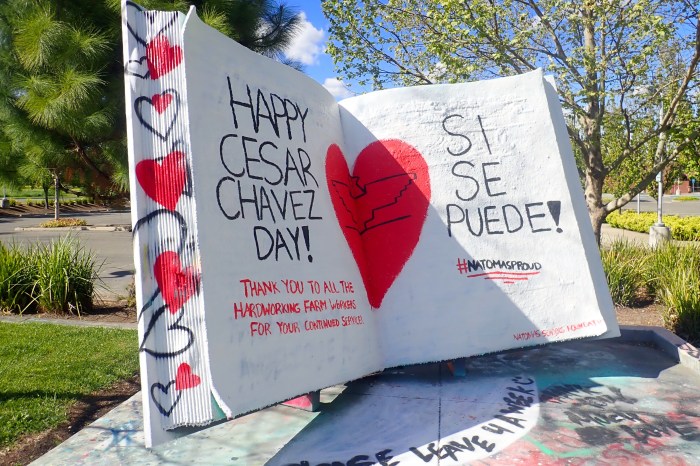 HAPPY
CESAR
CHAVEZ
DAY!
THANK YOU TO ALL THE
HARDWORKING FARM WORKERS
FOR YOUR CONTINUED SERVICE!
SI
SE
PUEDE!
#NATOMASPROUD
LEAVE 4 A WEEK